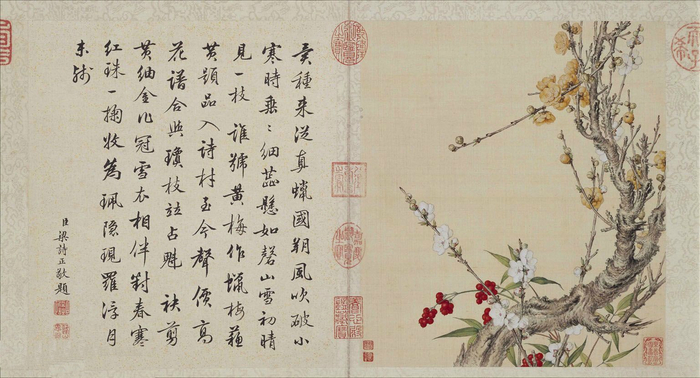 種来從真蠟國朔風吹破小
寒時垂〻細蕊懸如磬山雪初晴
見一枝 誰號黃梅作蠟梅蘓
黃題品入詩材至今聲價高
花譜合與瓊枝竝占魁 袂剪
黃紬金冠雪衣相伴對春寒
紅珠一掬收為珮隱現羅浮月
未殘
臣梁詩正敬題